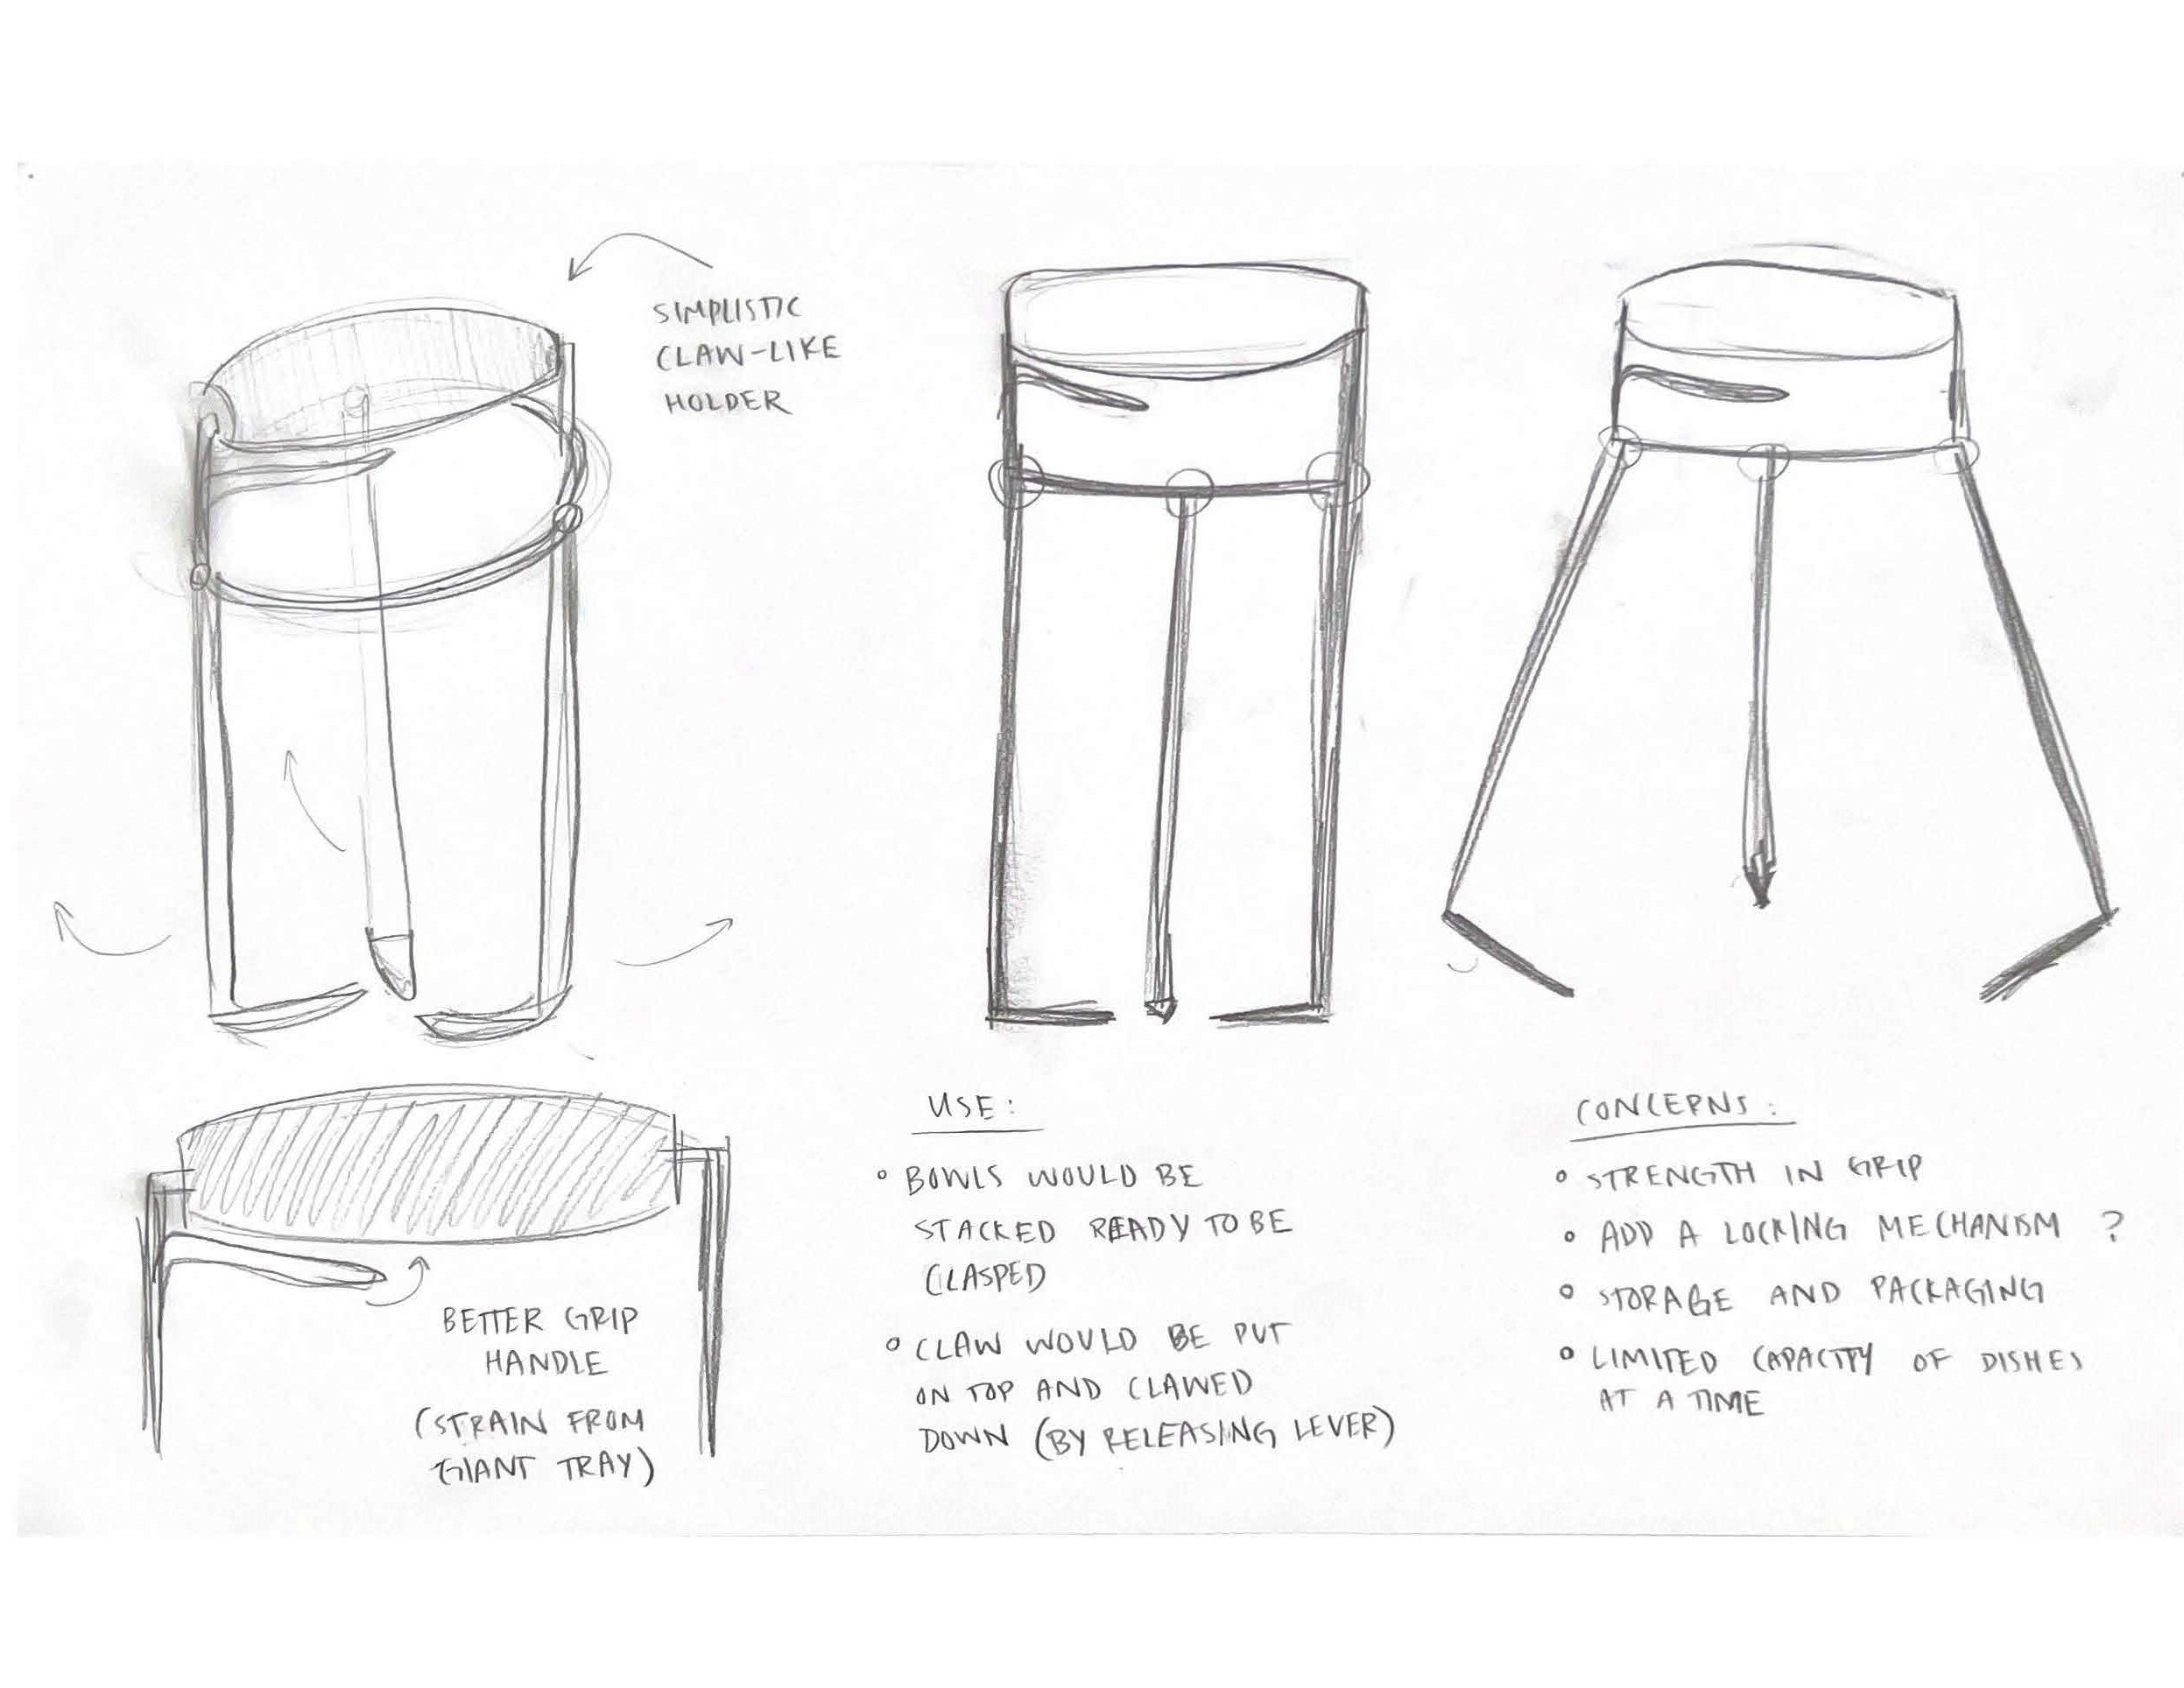 SIMPLISTIC
CLAW-LIKE
HOLDER
BETTER GRIP
HANDLE
(STRAIN FROM
GIANT TRAY)
USE:
• BOWLS WOULD BE
STACKED READY TO BE
CLASPED
• CLAW WOULD BE PUT
ON TOP AND CLAWED
DOWN (BY RELEASING LEVER)
CONCERNS:
• STRENGTH IN GRIP
• ADD A LOCKING MECHANISM ?
• STORAGE AND PACKAGING
• LIMITED CAPACITY OF DISHES
AT A TIME